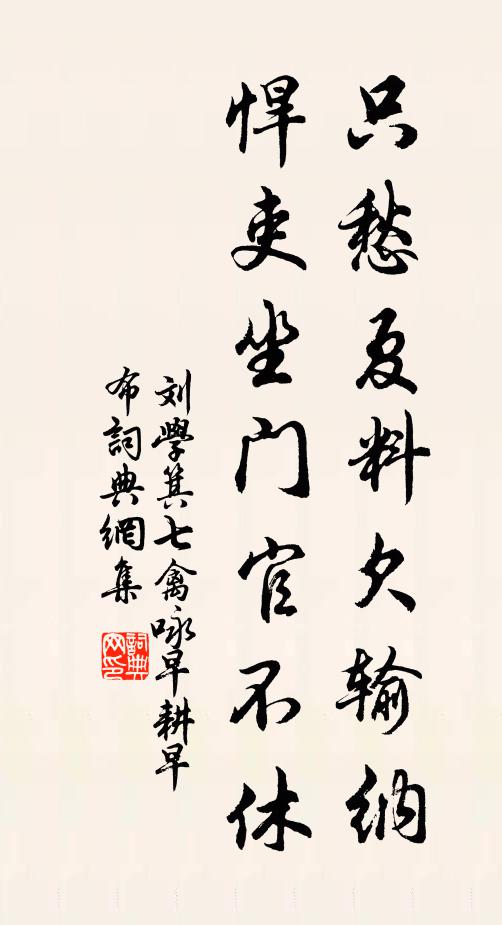 只愁夏料欠输纳
悍吏坐门官不休
刘学箕七禽咏早耕早
布詞典網集
詞典
网印